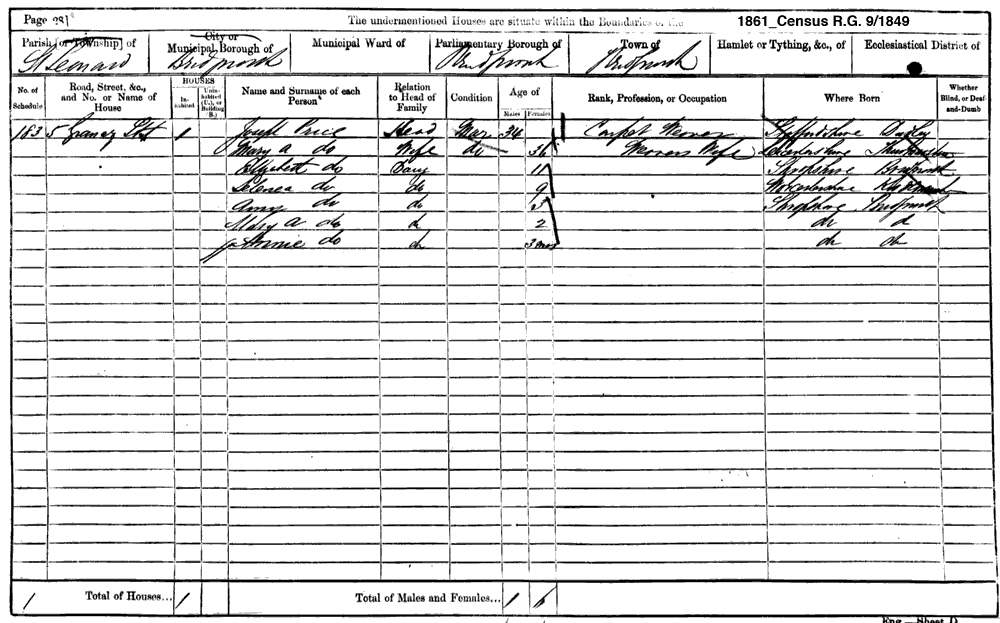 Page 28
The undermentioned Houses are situate within the Boundaries of the
1861_Census R.G. 9/1849
Parish [or Township] of
St Leonard
City or
Municipal Borough of
Bridgnorth
Municipal Ward of
Parliamentary Borough of
Bridgnorth
Town of
Bridgnorth
Hamlet or Tything, &c., of
Ecclesiastical District of
No. of Schedule
Road, Street, &c., and No. or Name of House
HOUSES
Inhabited
Uninhabited (U.), or Building (B.)
Name and Surname of each Person
Relation to Head of Family
Condition
Age of
Males
Females
Rank, Profession, or Occupation
Where Born
Whether Blind, or Deaf-and-Dumb
183 5 Granary 1 Joseph Price Head Mar 36 Carpet Weaver Staffordshire Dudley
Mary A do Wife do 36 Weavers Wife Leicestershire
Elizabeth do Daur 11 Shropshire Bridgnorth
Selena do do 9 Worcestershire
Amy do do 5 Shropshire Bridgnorth
Mary A do do 2 do do
Annie do do 3 mos do do
1 Total of Houses... 1
Total of Males and Females... 1 6
Eng.—Sheet D.